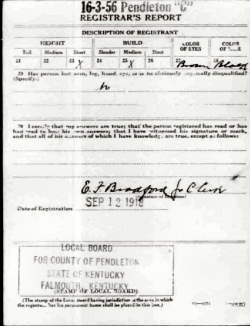 16-3-56 Pendleton "C"
REGISTRAR'S REPORT
DESCRIPTION OF REGISTRANT
HEIGHT BUILD COLOR OF EYES COLOR OF HAIR
Tall Medium Short Slender Medium Stout
21 22 23 X 24 25 X 26 27 Brown 28 Black
29 Has person lost arm, leg, hand, eye, or is he obviously physically disqualified?
(Specify.)
no
30 I certify that my answers are true; that the person registered has read or has
had read to him his own answers; that I have witnessed his signature or mark,
and that all of his answers of which I have knowledge are true, except as follows:
E. F. Bradford Jr Clerk
Date of Registration SEP 12 1918
LOCAL BOARD
FOR COUNTY OF PENDLETON
STATE OF KENTUCKY
FALMOUTH, KENTUCKY
(STAMP OF LOCAL BOARD)
(The stamp of the Local Board having jurisdiction of the area in which
the registrant has his permanent home shall be placed in this box.)